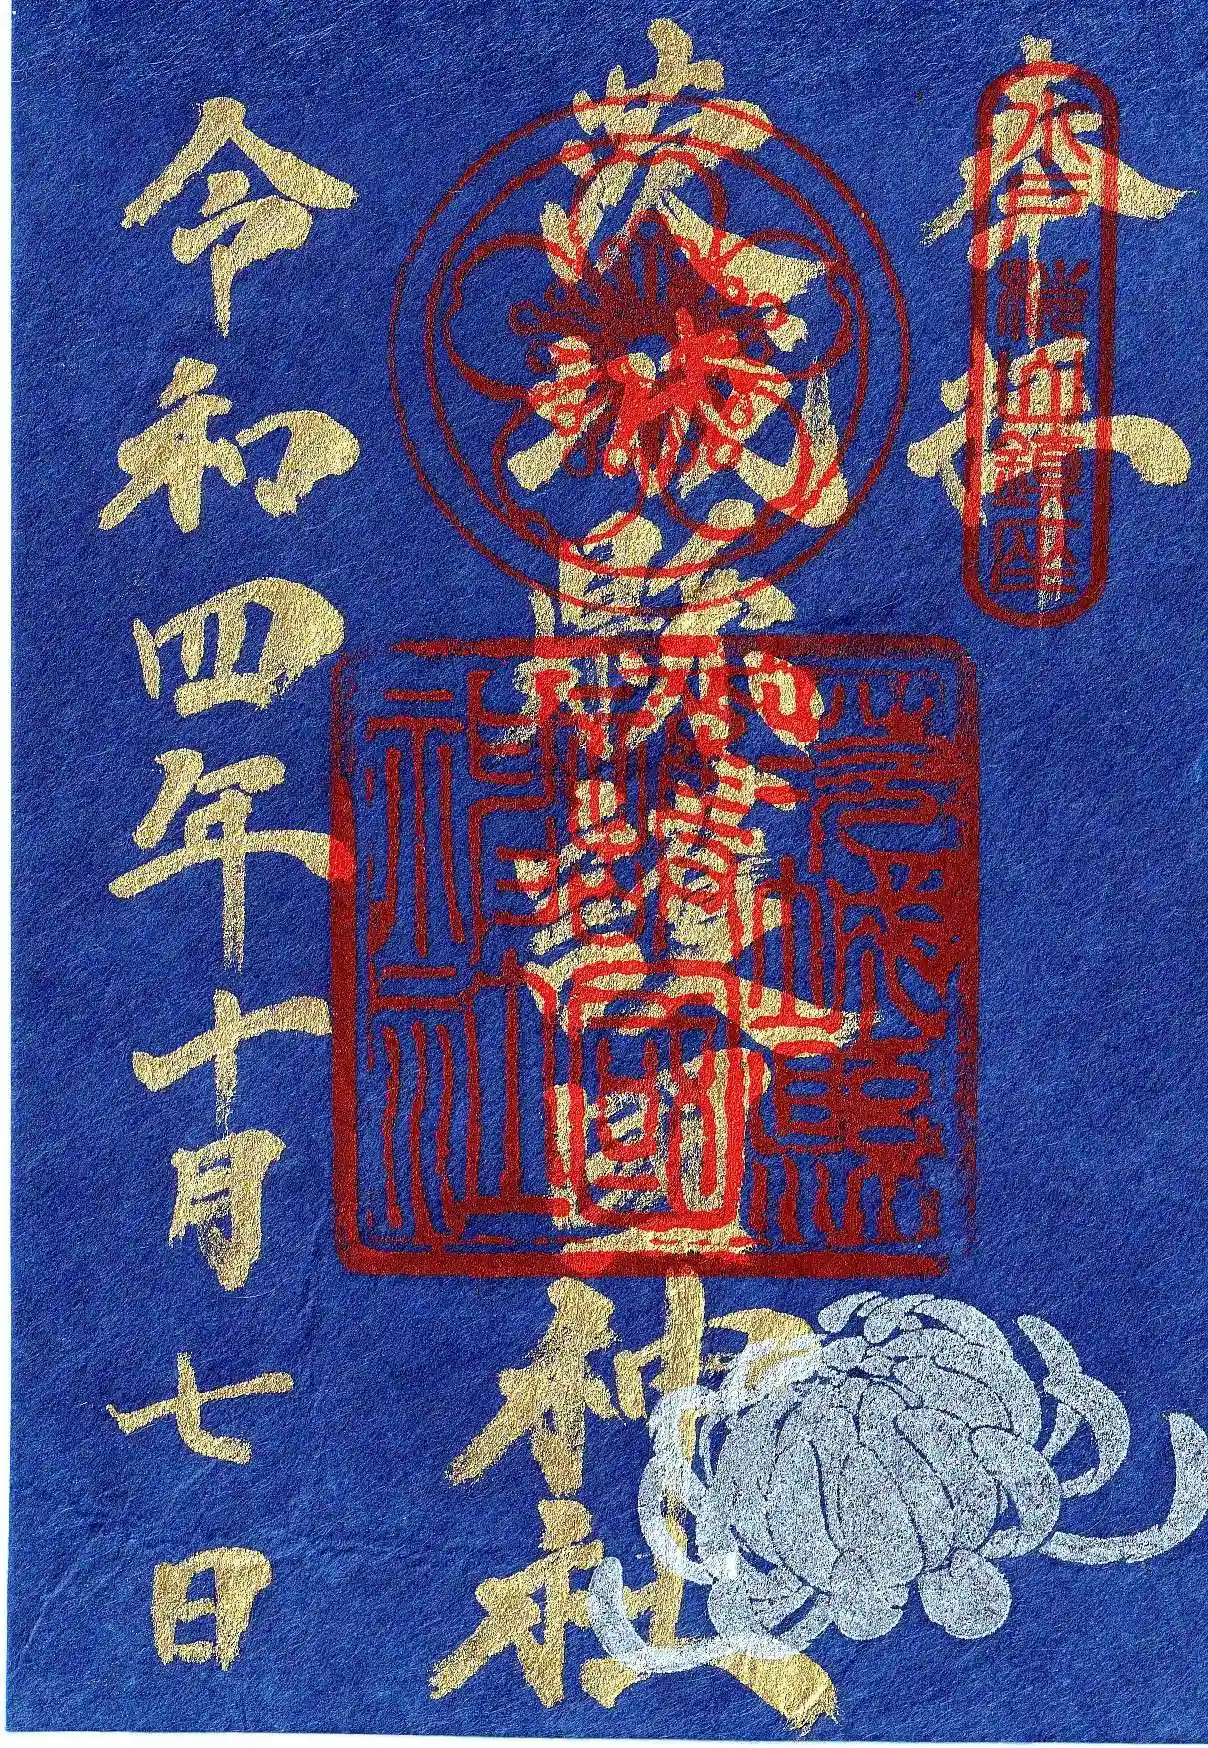 奉拝
水戸櫻山鎮座
茨城縣護國神社
茨城縣
護國
神社
令和四年十月七日